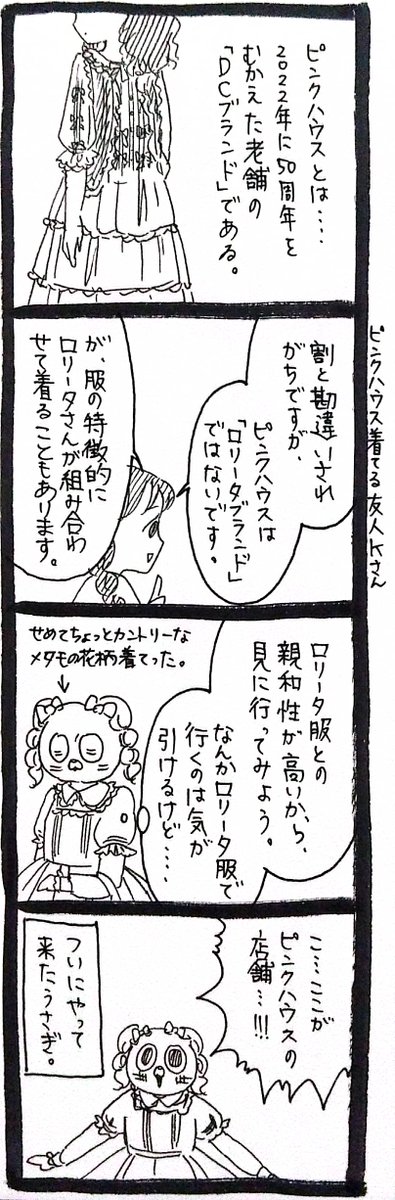 ピンクハウスとは…。
2022年に50周年を
むかえた老舗の
「DCブランド」である。
ピンクハウス着てる友人Kさん
割と勘違いされ
がちですが、
ピンクハウスは
「ロリータブランド」
ではないです。
が、服の特徴的に
ロリータさんが組み合わ
せて着ることもあります。
ロリータ服との
親和性が高いから、
見に行ってみよう。
なんかロリータ服で
行くのは気が
引けるけど…。
せめてちょっとカントリーな
メタモの花柄着てった。
こ…ここが
ピンクハウスの
店舗…!!!
ついにやって
来たうさぎ。